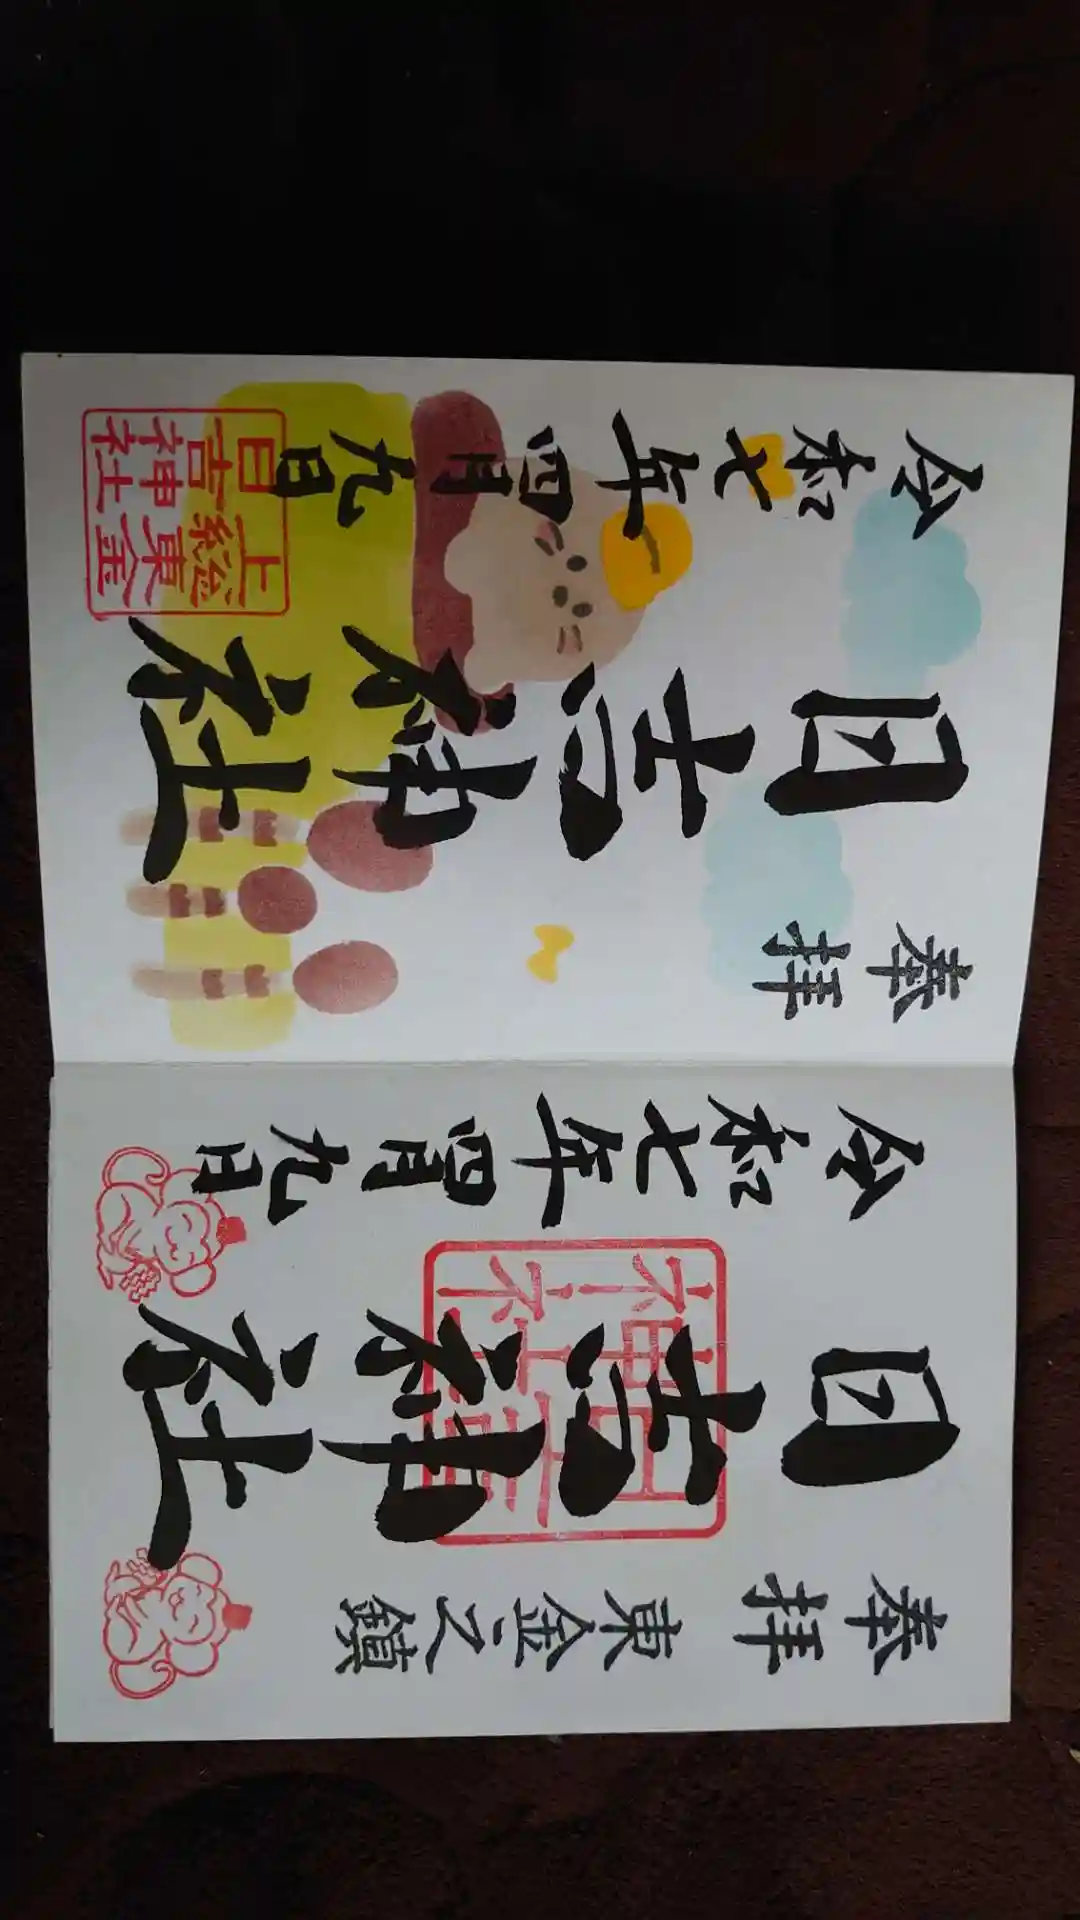 奉拝
東金之鎮
日吉神社
日吉
神社
令和七年四月九日
奉拝
日吉神社
令和七年四月九日
上総東金
日吉神社